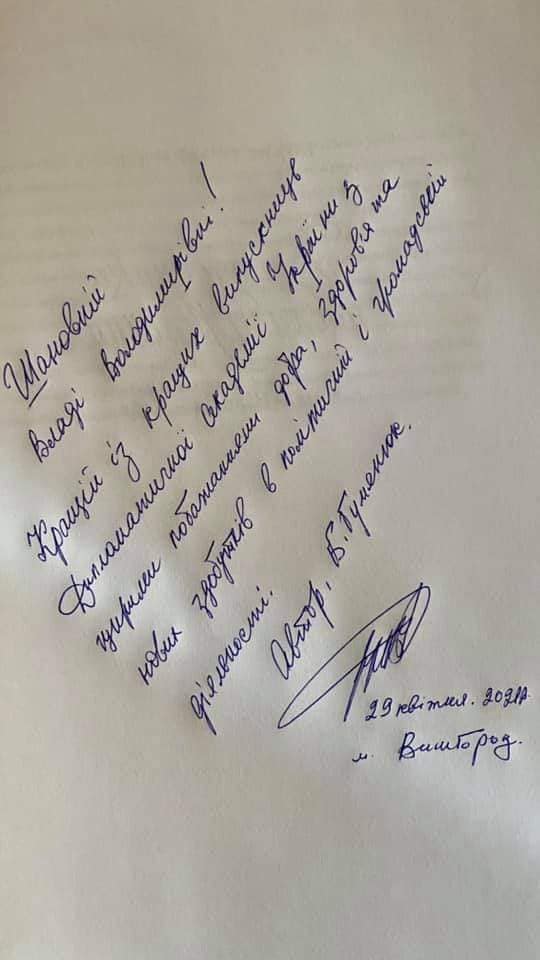 Шановній
Владі Володимирівні!
Кращій із кращих випускниць
Дипломатичної академії України з
щирими побажаннями добра, здоров'я та
нових здобутків в політичній і громадській
діяльності.
Автор, Б. Гуменюк.
29 квітня. 2021р.
м. Вишгород.